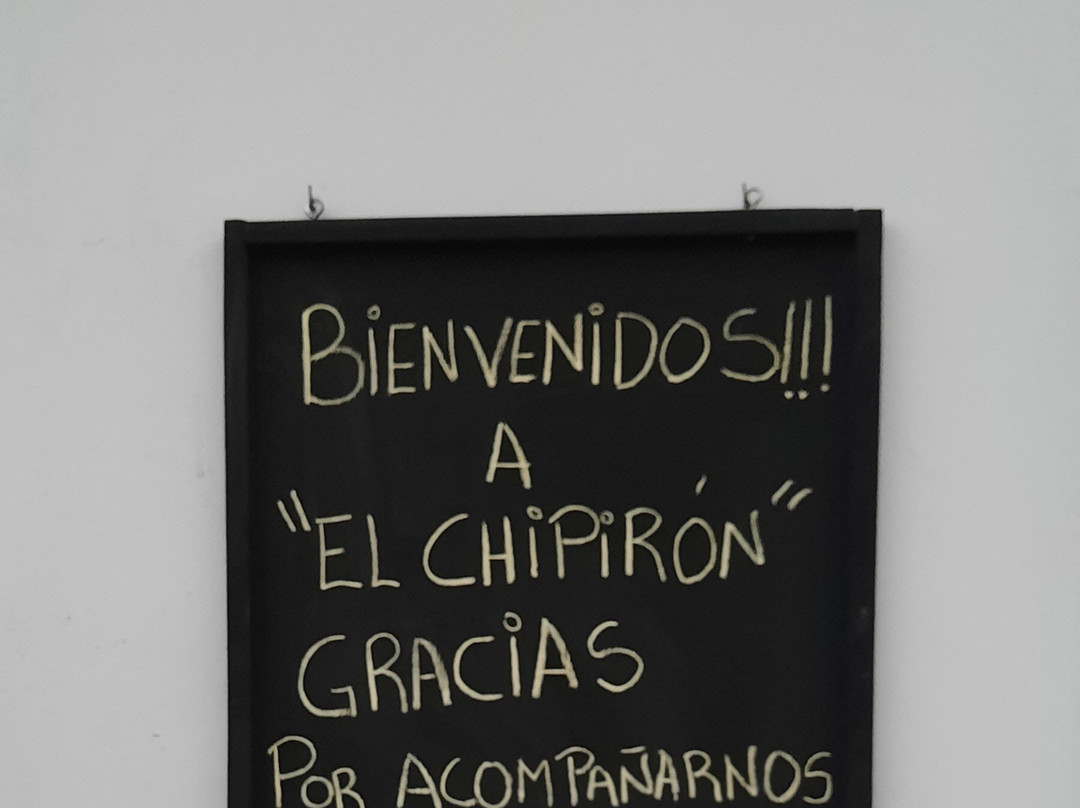 BiENVENiDOS!!!
A
"EL CHiPiRÓN"
GRACiAS
POR ACOMPAÑARNOS